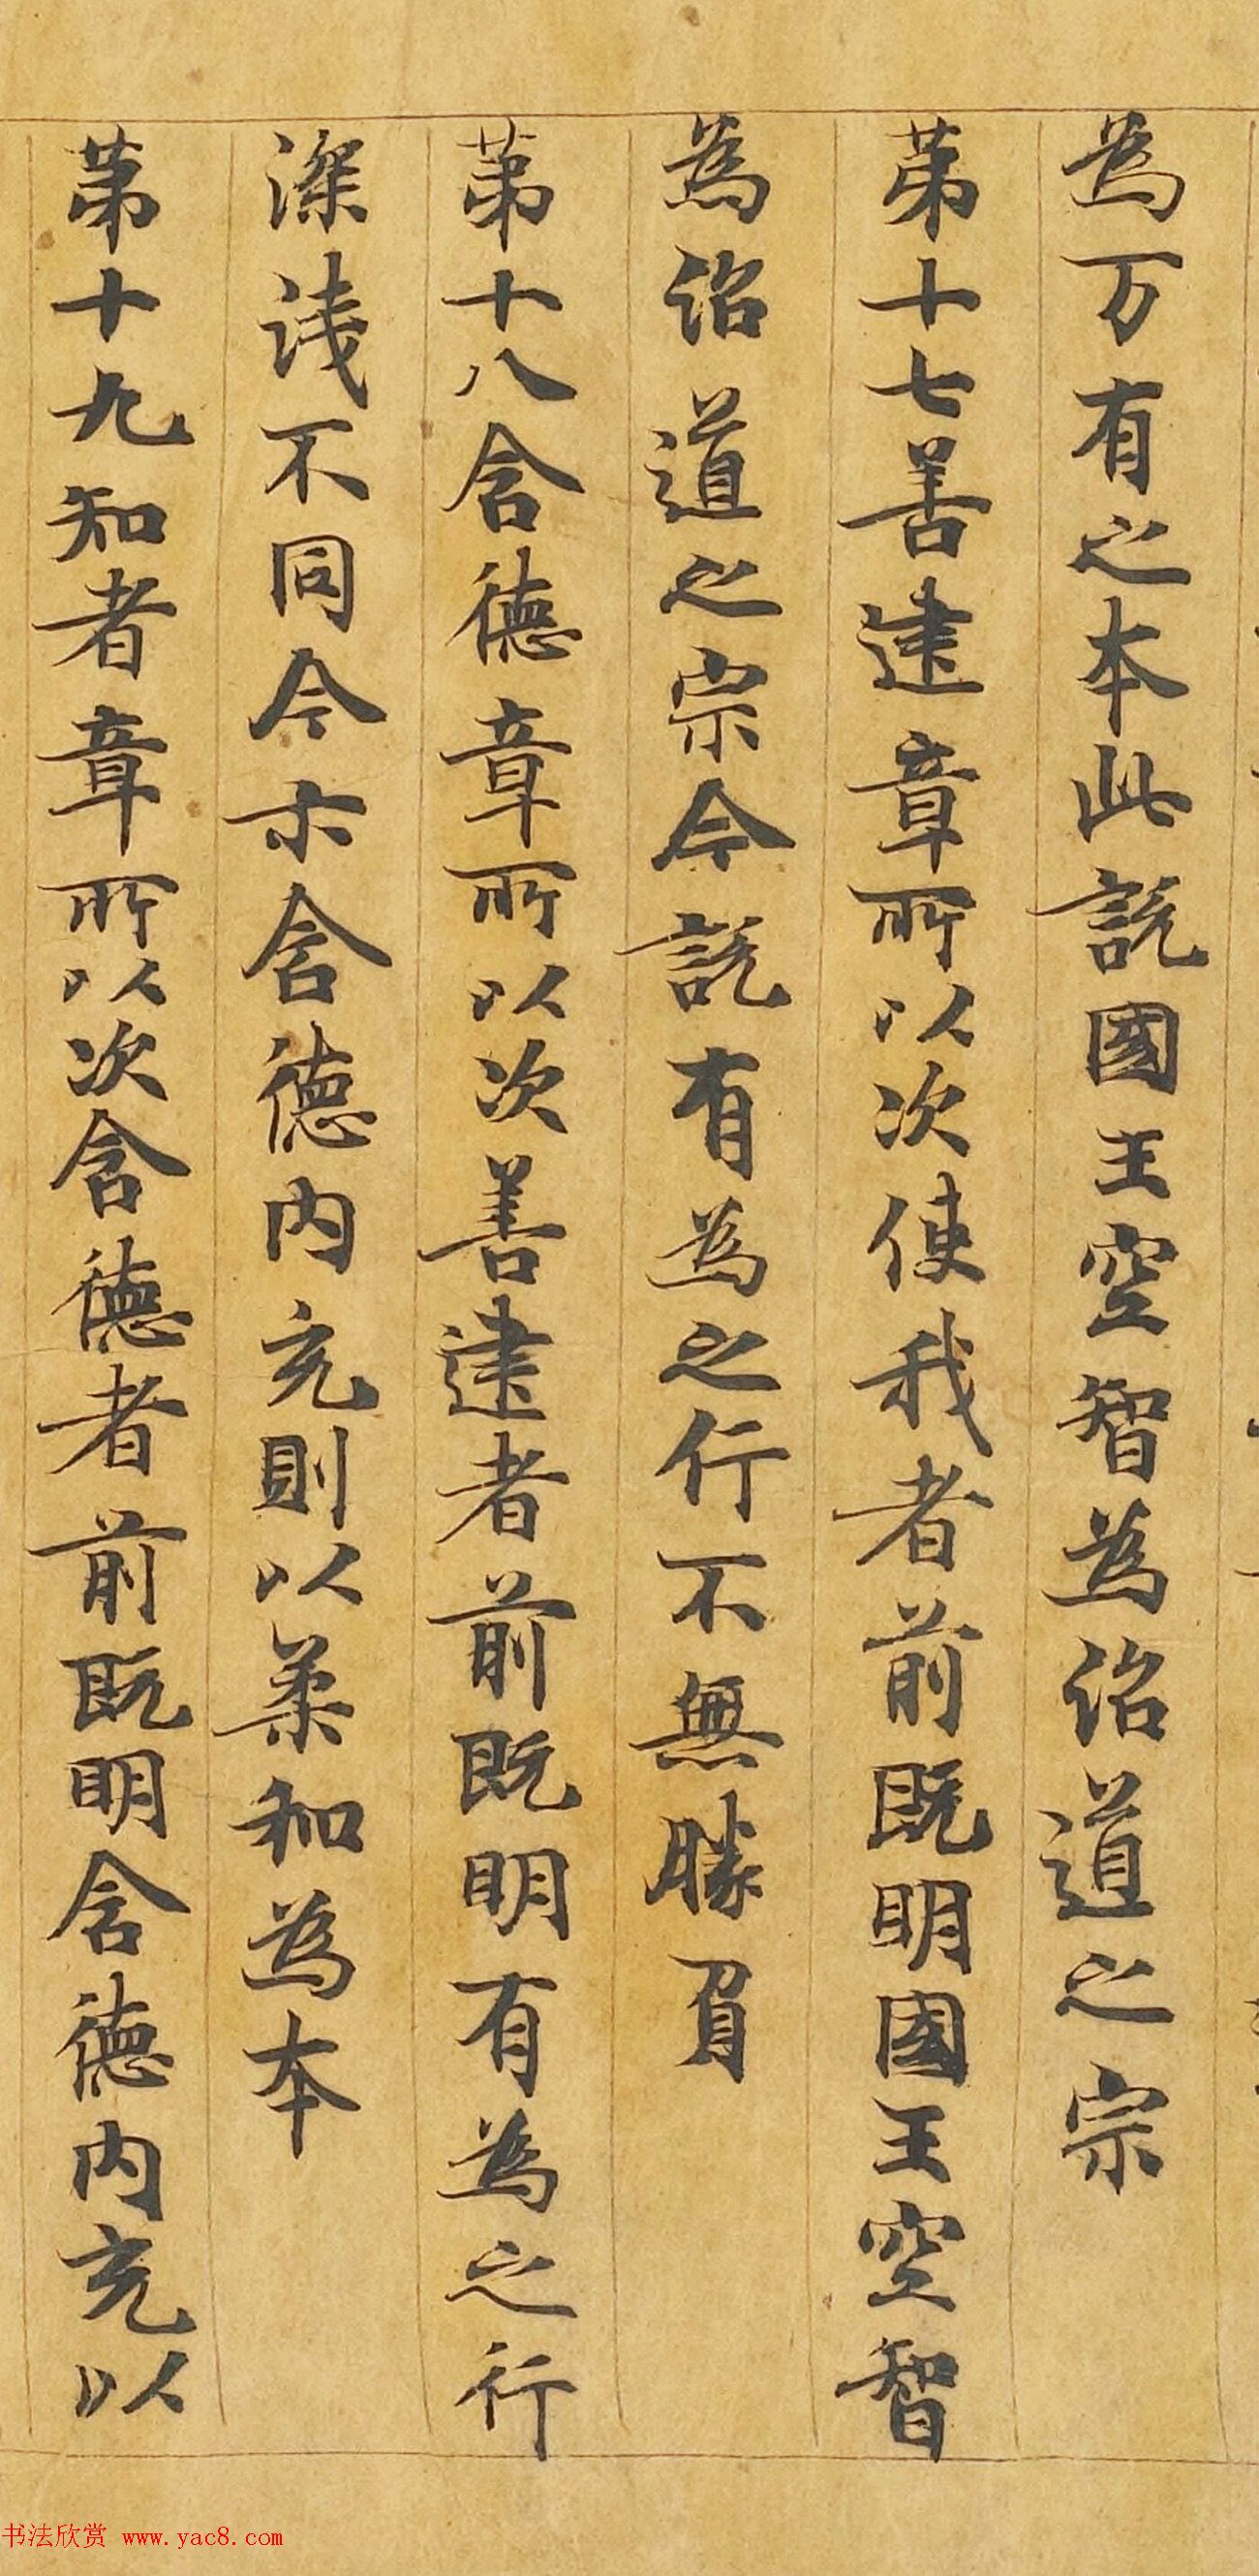 為万有之本此説國王空智為治道之宗
苐十七善建章所以次使我者前既明國王空智
為治道之宗今説有為之行不無勝負
苐十八含德章所以次善建者前既明有為之行
深淺不同今亦含德內充則以柔和為本
苐十九知者章所以次含德者前既明含德內充以
书法欣赏 www.yac8.com